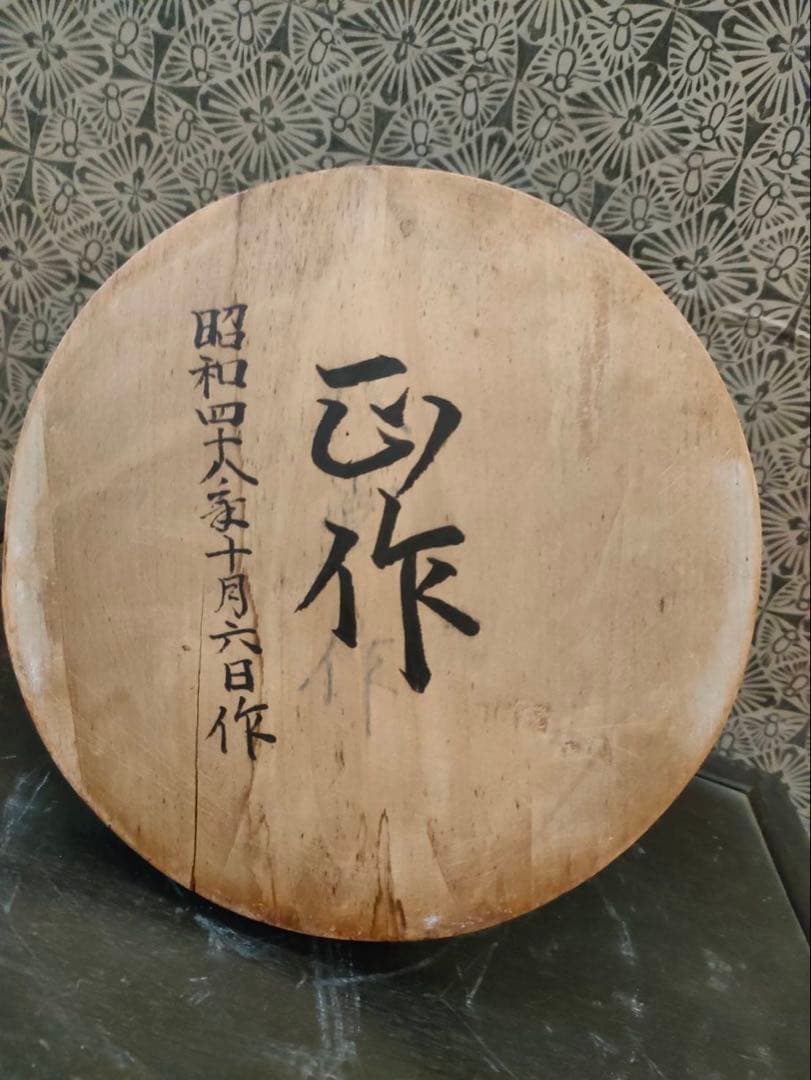 正作
昭和四十八年十月六日作